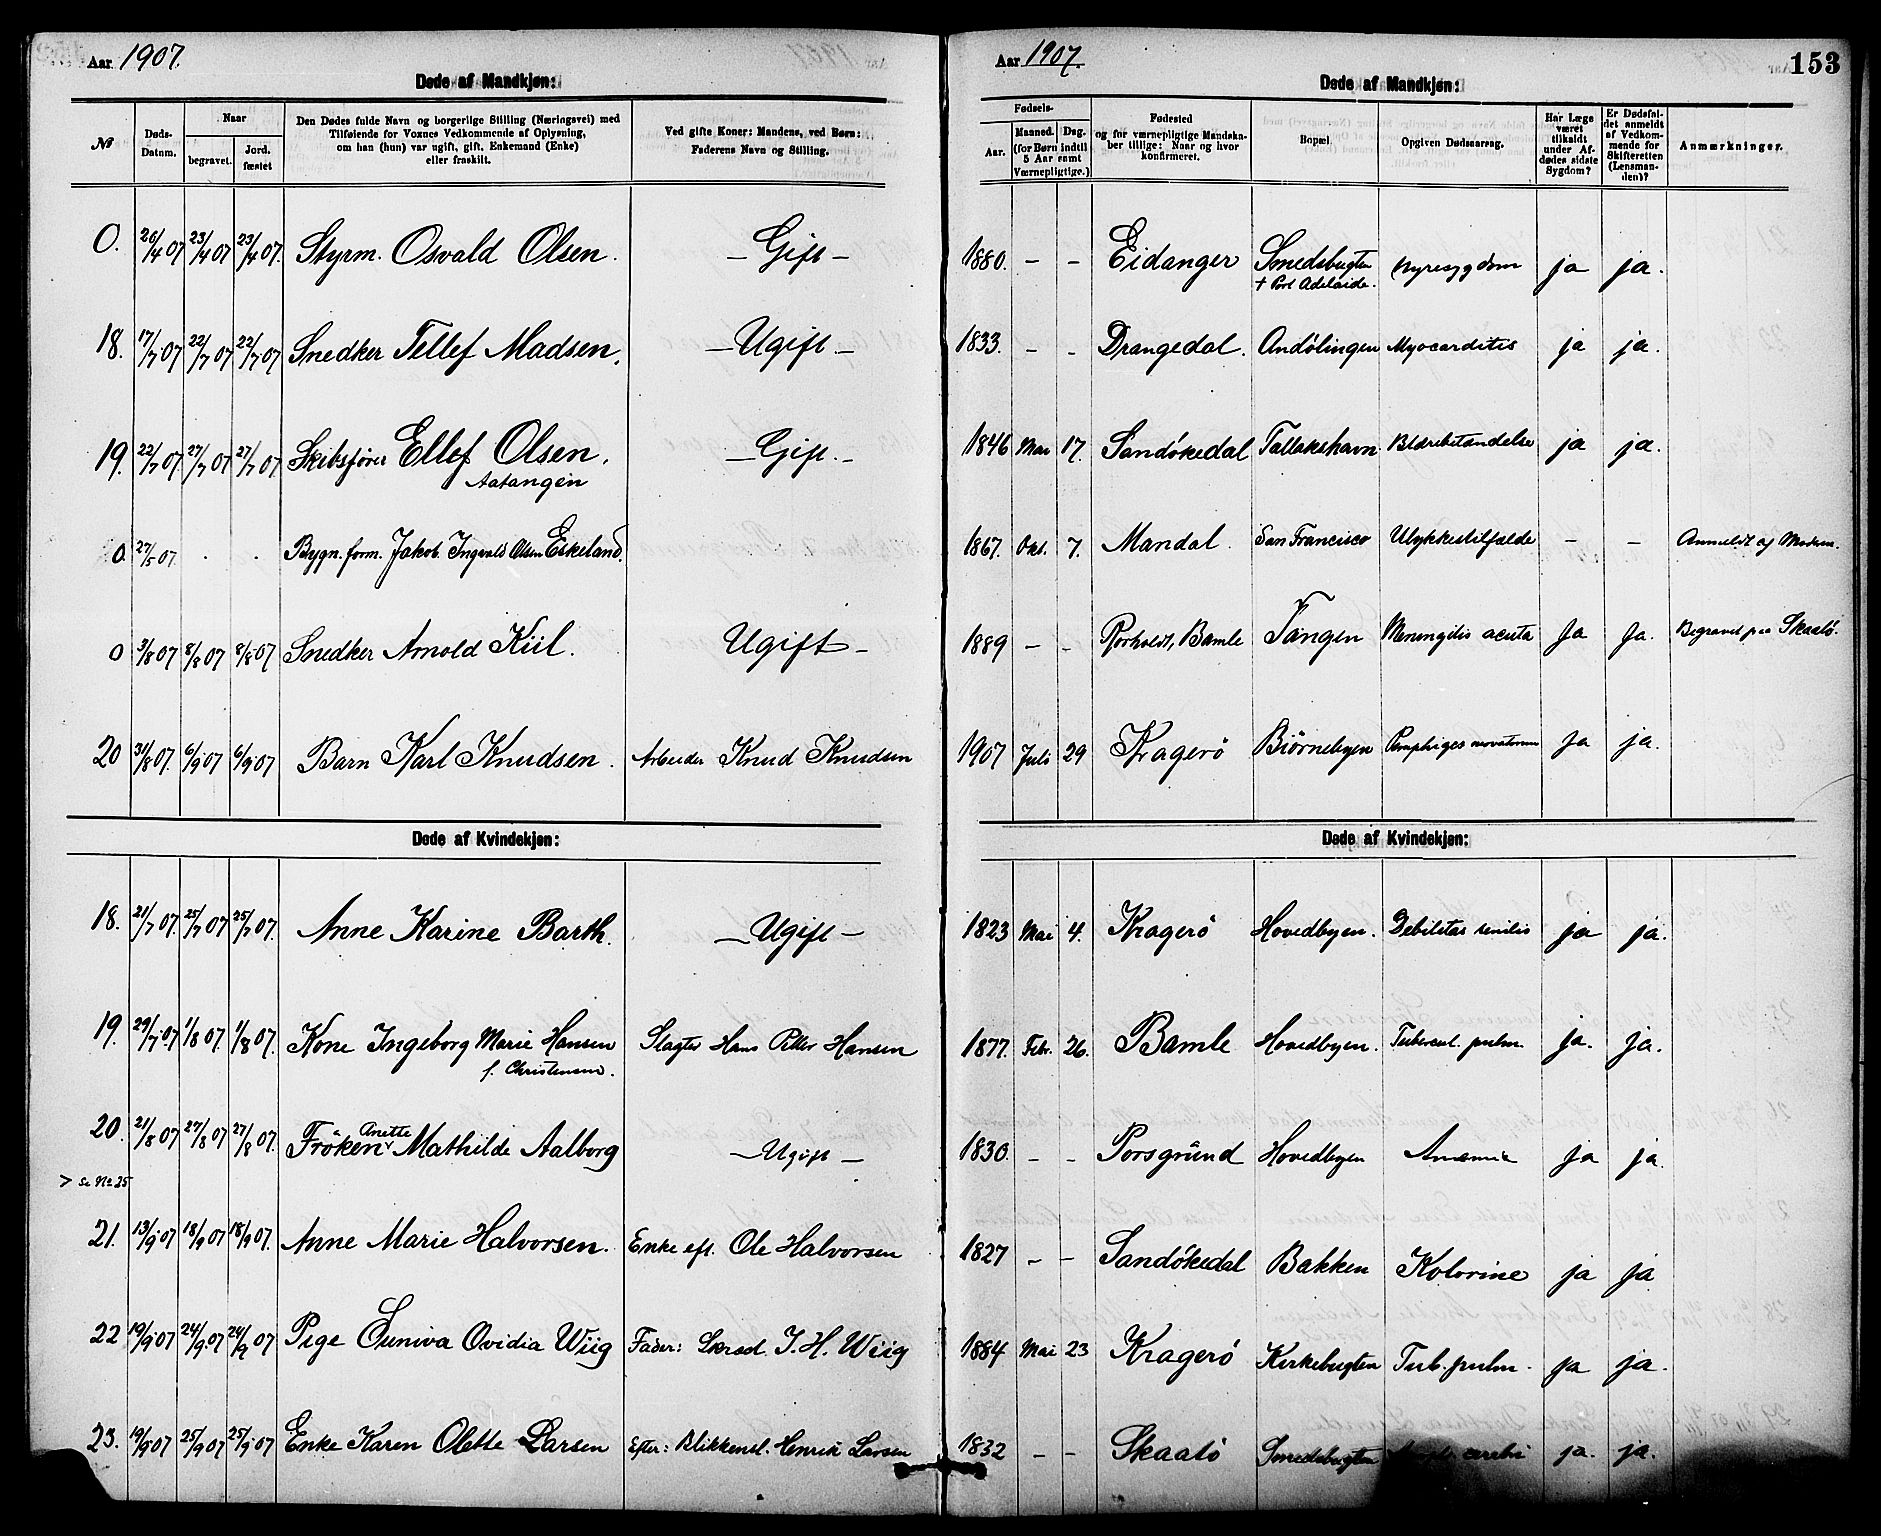 Aar 1907.
Døde af Mandkjøn:
№
Døds-
Datum.
Naar
begravet.
Jord.
fæstet
Den Dødes fulde Navn og borgerlige Stilling (Næringsvei) med
Tilføiende for Voxnes Vedkommende af Oplysning,
om han (hun) var ugift, gift, Enkemand (Enke)
eller fraskilt.
Ved gifte Koner: Mandens, ved Børn:
Faderens Navn og Stilling.
0. 20/4 07 23/4 07 23/4 07. Styrm. Osvald Olsen. – Gift –
18. 17/7 07 22/7 07 22/7 07 Snedker Tellef Madsen. – Ugift. –
19. 22/7 07 27/7 07 27/7 07. Skibsfører Ellef Olsen. – Gift. –
Aatangen
0 27/5 07. . . Bygn. form. Jakob Ingvald Olsen Eskeland.
0 3/8 07 8/8 07 8/8 07 Snedker Arnold Kiil. Ugift –
20 31/8 07. 6/9 07 6/9 07 Barn Karl Knudsen. Arbeider Knud Knudsen
Døde af Kvindekjøn:
18. 21/7 07. 25/7 07 25/7 07. Anne Karine Barth. – Ugift –
19. 29/7 07 1/8 07. 1/8 07. Kone Ingeborg Marie Hansen Slagter Hans Petter Hansen
f. Christensen.
Anette
20. 21/8 07 27/8 07 27/8 07. Frøken Mathilde Aalborg – Ugift –
> se No 25
21. 13/9 07 18/9 07 18/9 07. Anne Marie Halvorsen. Enke eft. Ole Halvorsen
22 19/9 07 24/9 07 24/9 07 Pige Suniva Ovidia Wiig Fader: Skræd. J. H. Wiig
23. 19/9 07 25/9 07 25/9 07 Enke Karen Olette Larsen Efter: Blikkensl. Henrik Larsen
Aar 1907.
153
Døde af Mandkjøn:
Fødsels-
Aar.
Maaned.
Dag.
(for Børn indtil
5 Aar samt
Værnepligtige.)
Fødested
og for værnepligtige Mandska-
ber tillige: Naar og hvor
konfirmeret.
Bopæl.
Opgiven Dødsaarsag.
Har Læge
været
tilkaldt
under Af-
dødes sidste
Sygdom?
Er Dødsfal-
det anmeldt
af Vedkom-
mende for
Skifteretten
(Lensman-
den)?
Anmærkninger.
1880. – – Eidanger Smedsbugten Nyresygdom ja ja.
+ Port Adelaide.
1833. – – Drangedal. Andølingen Myocarditis ja ja.
1846 Mai 17. Sandøkedal Tallakshavn Blærebetændelse ja ja.
1867. Okt. 7. Mandal. San Francisco Ulykkestilfælde – – Anmeldt af Moderen.
1889 – – Rørholdt, Bamle Tangen Meningitis acuta Ja Ja. Begravet paa Skaatø.
1907 Juli 29 Kragerø Biørnebyen Pemphiges Ja ja.
Døde af Kvindekjøn:
1823 Mai 4. Kragerø Hovedbyen. Debilitas senilis ja ja.
1877. Febr. 26. Bamle Hovedbyen. Tubercul. pulm. ja. ja.
1830. – – Porsgrund Hovedbyen Anæmia ja ja.
1827 – – Sandøkedal Bakken Kolorine ja ja
1884 Mai 23 Kragerø Kirkebugten Tub. pulm. ja ja.
1832 – – Skaatø Smedsbugten cerebri ja. ja.